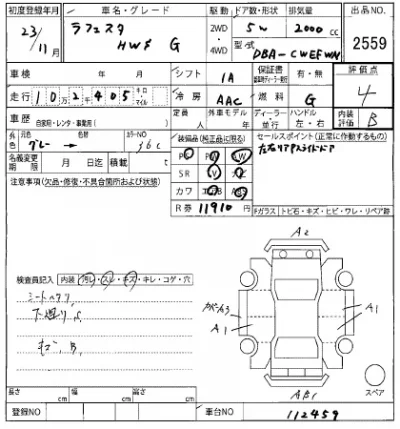 初度登録年月 車名・グレード 駆動 ドア数・形状 排気量 出品NO.
23/11月 ラフェスタ HWS G 2WD・4WD 5W 2000cc 2559
型式 DBA-CWEFWN
車検 年 月 シフト 1A 保証書 有・無 評価点
走行 10万2405 キロ・マイル 冷房 AAC 燃料 G 4
車歴 自家用・レンタ・事業用( ) 定員 人 外車モデル 年 ディーラー・並行 ハンドル 左・右 内装評価 B
外色 元色 グレー → 色替 カラーNO 36C 装備品(純正品に限る) セールスポイント(正常に作動するもの)
左右リアPスライドドア
名義変更期限 月 日迄 積載 t
注意事項(欠品・修復・不具合箇所および状態)
SR
カワ
R券 11910円 Fガラス トビ石・キズ・ヒビ・ワレ・リペア跡
A2
検査員記入 内装 汚レ・スレ・キズ・キレ・コゲ・穴
A1
A1
長さ cm 幅 cm 高さ cm スペア
登録NO 車台NO 112459